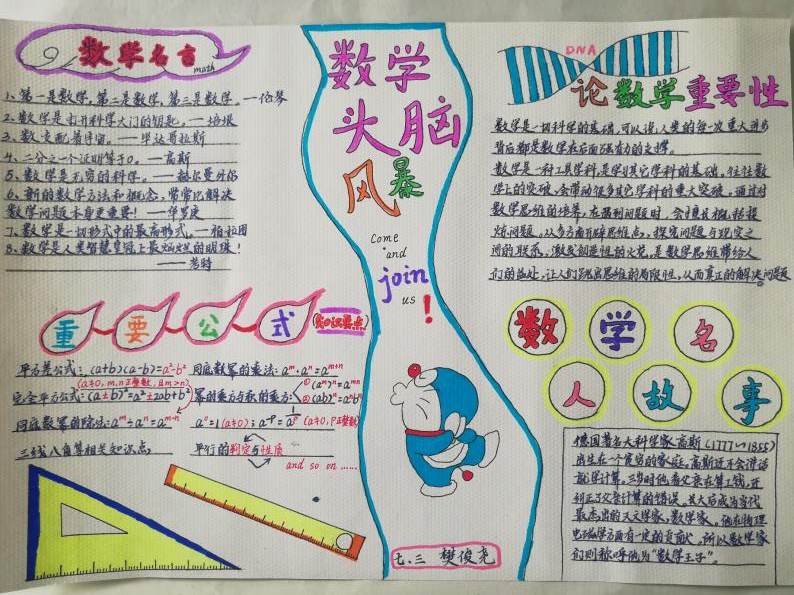 数学名言
math
1、第一是数学,第二是数学,第三是数学。——伦琴
2、数学是打开科学大门的钥匙。——培根
3、数支配着宇宙。——毕达哥拉斯
4、二分之一个证明等于0。——高斯
5、数学是无穷的科学。——赫尔曼外尔
6、新的数学方法和概念,常常比解决
数学问题本身更重要!——华罗庚
7、数学是一切形式中的最高形式。——柏拉图
8、数学是人类智慧皇冠上最灿烂的明珠!
——考特
重要公式
(知识要点)
平方差公式:(a+b)(a-b)=a²-b²
同底数幂的乘法:aᵐ·aⁿ=aᵐ⁺ⁿ
(a≠0,m,n正整数,且m>n)
完全平方公式:(a±b)²=a²±2ab+b²
幂的乘方与积的乘方:①(aᵐ)ⁿ=aᵐⁿ
②(ab)ⁿ=aⁿbⁿ
同底数幂的除法:aᵐ÷aⁿ=aᵐ⁻ⁿ
a⁰=1(a≠0);a⁻ᵖ=1/aᵖ(a≠0,P正整数)
三线八角算相关知识点;
平行的判定与性质
and so on ……
数学
头脑
风暴
come
and
join
us !
七、三 樊俊尧
DNA
论数学重要性
数学是一切科学的基础,可以说人类的每一次重大进步
背后都是数学在后面强有力的支撑。
数学是一种工具学科,是学习其它学科的基础,往往数
学上的突破,会带动很多其它学科的重大突破。通过对
数学思维的培养,在遇到问题时,会
问题,从多方面开辟思维点,探究问题与现实之
间的联系,激发创造性的火花,是数学思维带给人
们的益处,让人们跳出思维的局限性,从而真正的解决问题。
数学名
人故事
德国著名大科学家高斯(1777~1855)
出生在一个贫穷的家庭。高斯还不会讲话
就学计算。三岁时他看父亲在算工钱,还
纠正了父亲计算的错误。长大后成为当代
最杰出的天文学家,数学家。他在物理
电磁学方面有一定的贡献,所以数学家
们则称呼他为“数学王子”。